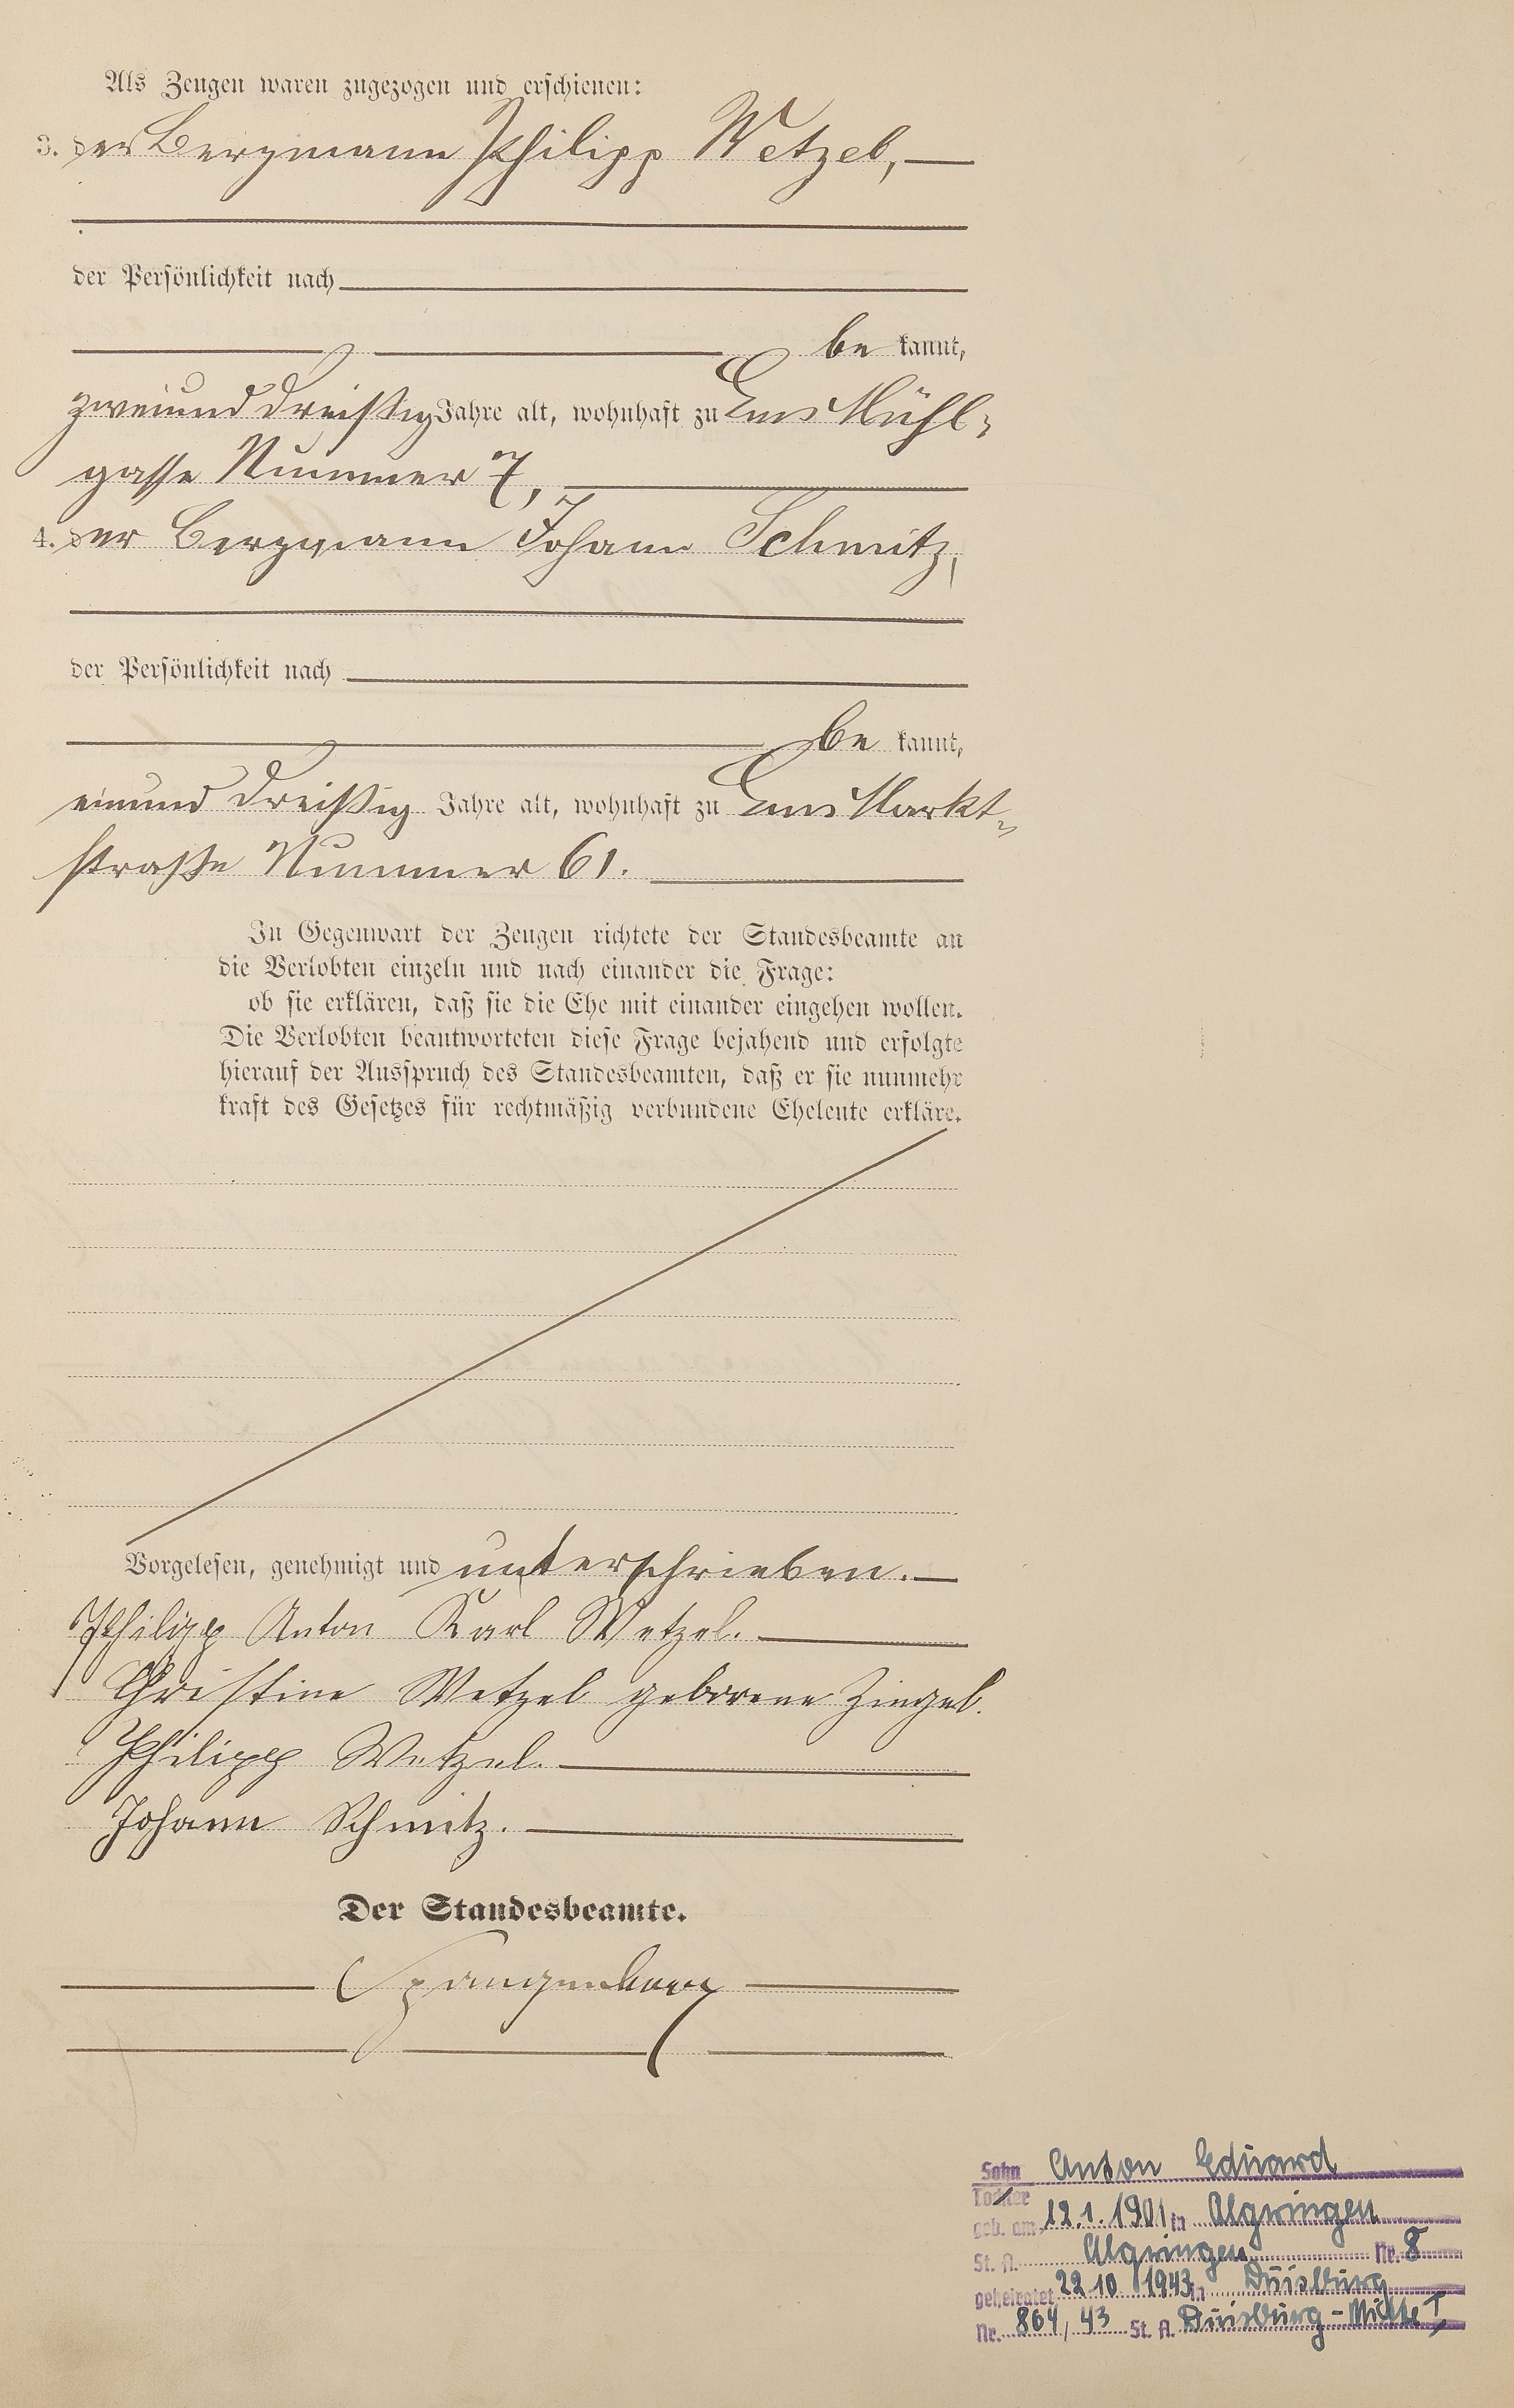 Als Zeugen waren zugezogen und erschienen:
3. der Bergmann Philipp Wetzel,
der Persönlichkeit nach
be kannt,
zweiunddreißig Jahre alt, wohnhaft zu Ems Mühl-
gasse Nummer 7,
4. der Bergmann Johann Schmitz,
der Persönlichkeit nach
be kannt,
einunddreißig Jahre alt, wohnhaft zu Ems Markt-
straße Nummer 61.
In Gegenwart der Zeugen richtete der Standesbeamte an
die Verlobten einzeln und nach einander die Frage:
ob sie erklären, daß sie die Ehe mit einander eingehen wollen.
Die Verlobten beantworteten diese Frage bejahend und erfolgte
hierauf der Ausspruch des Standesbeamten, daß er sie nunmehr
kraft des Gesetzes für rechtmäßig verbundene Eheleute erkläre.
Vorgelesen, genehmigt und unterschrieben.
Philipp Anton Karl Wetzel.
Christine Wetzel geborene Zingel.
Philipp Wetzel.
Johann Schmitz.
Der Standesbeamte.
Spangenberg
Sohn Anton Eduard
Tochter
geb. am 12.1.1901 in Algringen
St. A. Algringen Nr. 8
geheiratet 22.10.1943 in Duisburg
Nr. 864/43 St. A. Duisburg-Mitte I